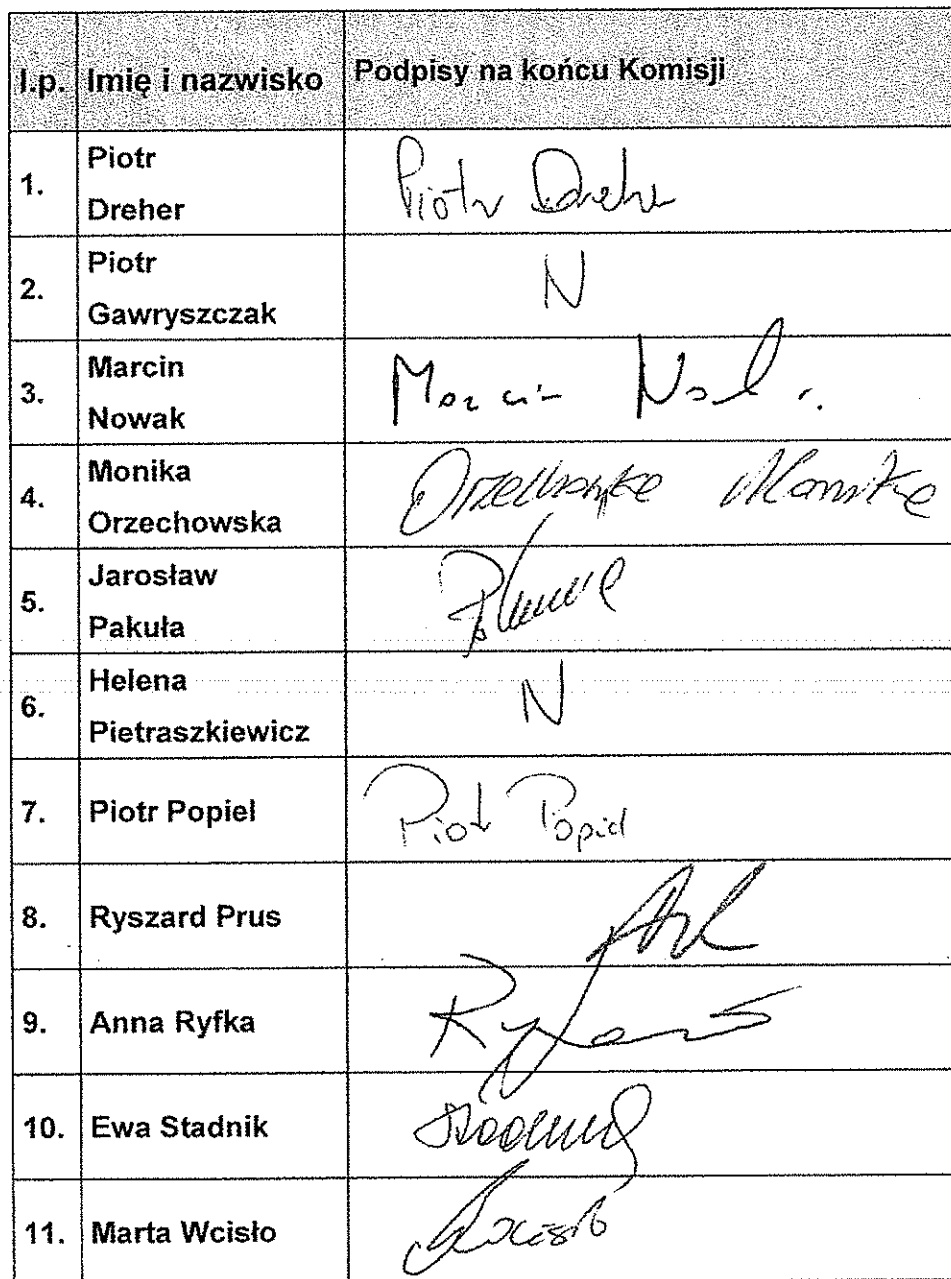 l.p. Imię i nazwisko Podpisy na końcu Komisji
1. Piotr Dreher Piotr Dreher
2. Piotr Gawryszczak N
3. Marcin Nowak Marcin
4. Monika Orzechowska Orzechowska Monika
5. Jarosław Pakuła
6. Helena Pietraszkiewicz N
7. Piotr Popiel Piotr Popiel
8. Ryszard Prus
9. Anna Ryfka
10. Ewa Stadnik
11. Marta Wcisło